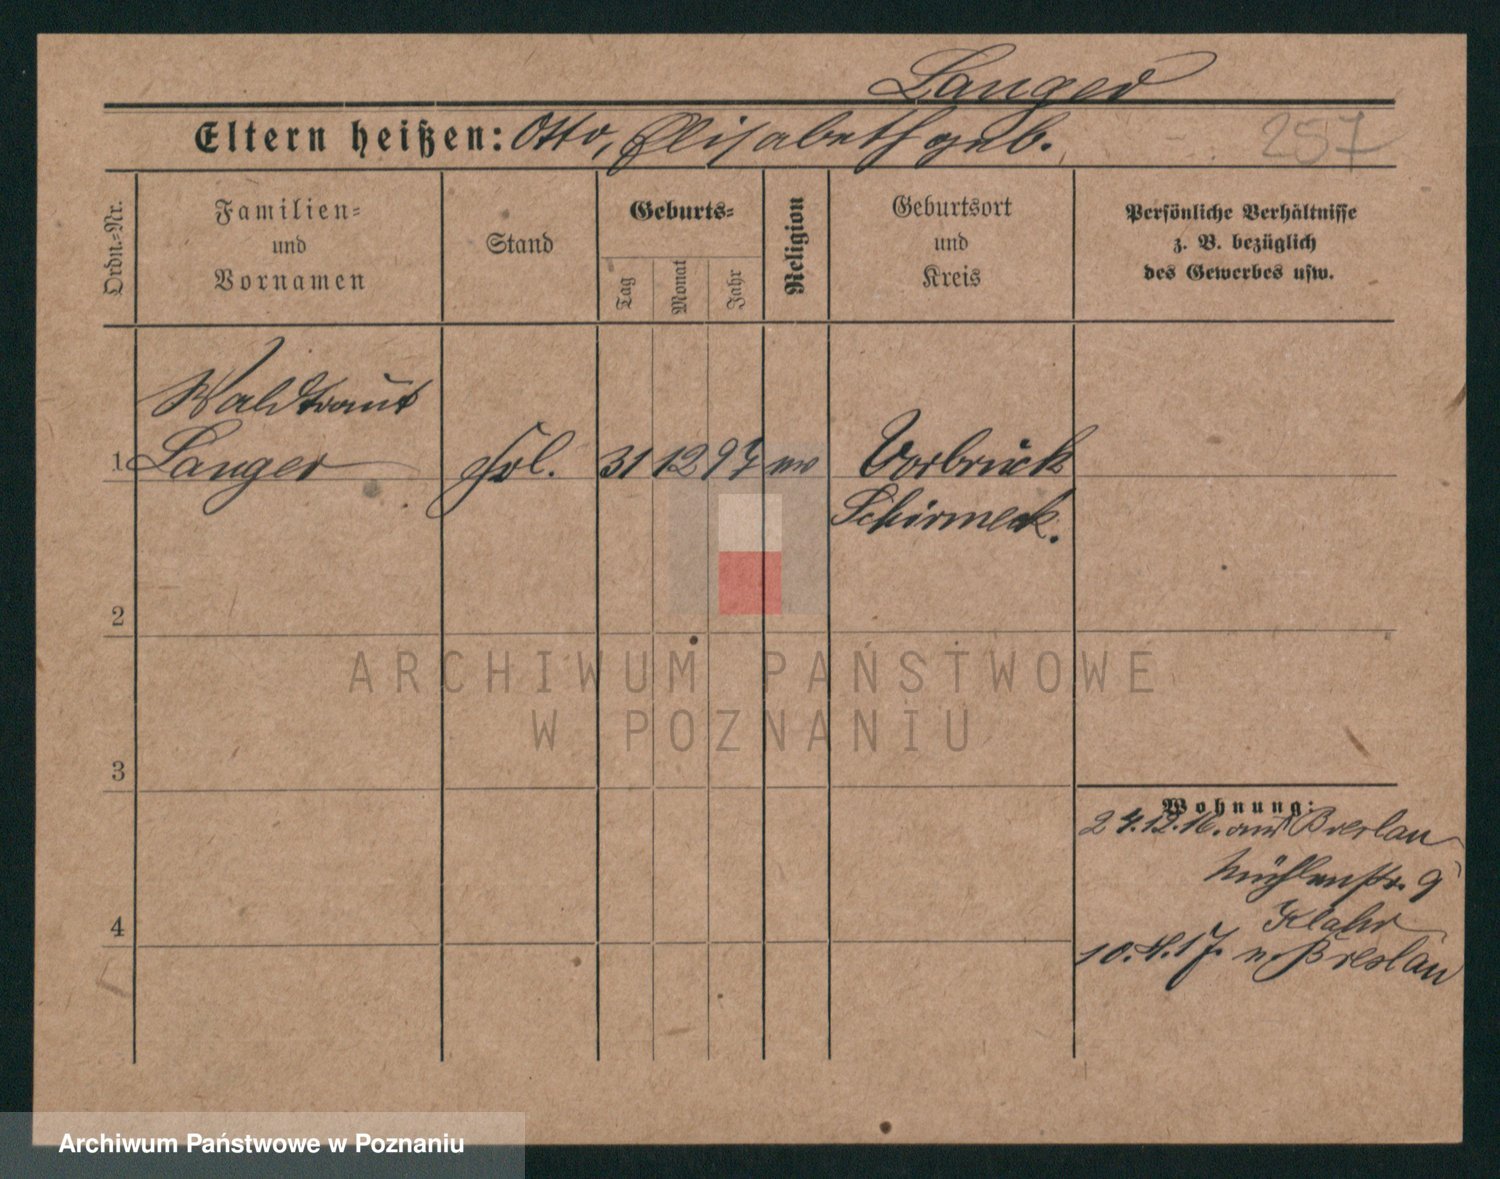 Langer
Eltern heißen: Otto, Elisabeth geb.
257
Ordn.-Nr.
Familien-
und
Vornamen
Stand
Geburts-
Tag
Monat
Jahr
Religion
Geburtsort
und
Kreis
Persönliche Verhältnisse
z. B. bezüglich
des Gewerbes usw.
Waldtraut
1 Langer Frl. 31 12 97 ev Vorbruck
Schirmeck.
2
ARCHIWUM PAŃSTWOWE
W POZNANIU
3
Wohnung:
24.12.16. aus Breslau
Mühlenstr. 9
Klahr
4
10.4.17. n. Breslau
Archiwum Państwowe w Poznaniu